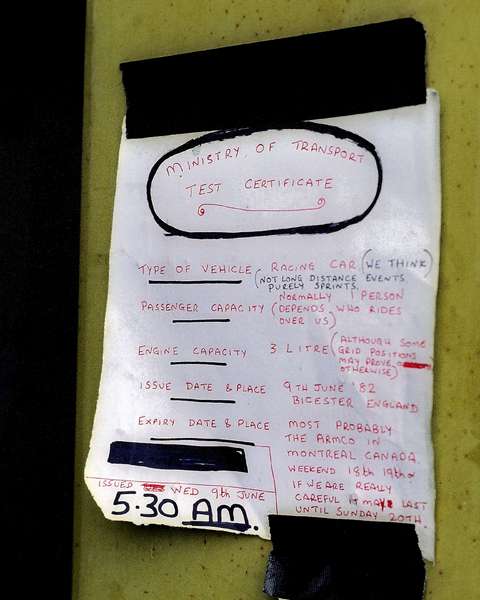 MINISTRY OF TRANSPORT
TEST CERTIFICATE
TYPE OF VEHICLE RACING CAR (WE THINK)
(NOT LONG DISTANCE EVENTS
PURELY SPRINTS.
PASSENGER CAPACITY NORMALLY 1 PERSON
(DEPENDS WHO RIDES
OVER US)
ENGINE CAPACITY 3 LITRE (ALTHOUGH SOME
GRID POSITIONS
MAY PROVE
OTHERWISE)
ISSUE DATE & PLACE 9TH JUNE '82
BICESTER ENGLAND
EXPIRY DATE & PLACE MOST PROBABLY
THE ARMCO IN
MONTREAL CANADA
WEEKEND 18th 19th &
IF WE ARE REALLY
CAREFUL IT MAY LAST
UNTIL SUNDAY 20TH.
ISSUED WED 9th JUNE
5.30 AM.